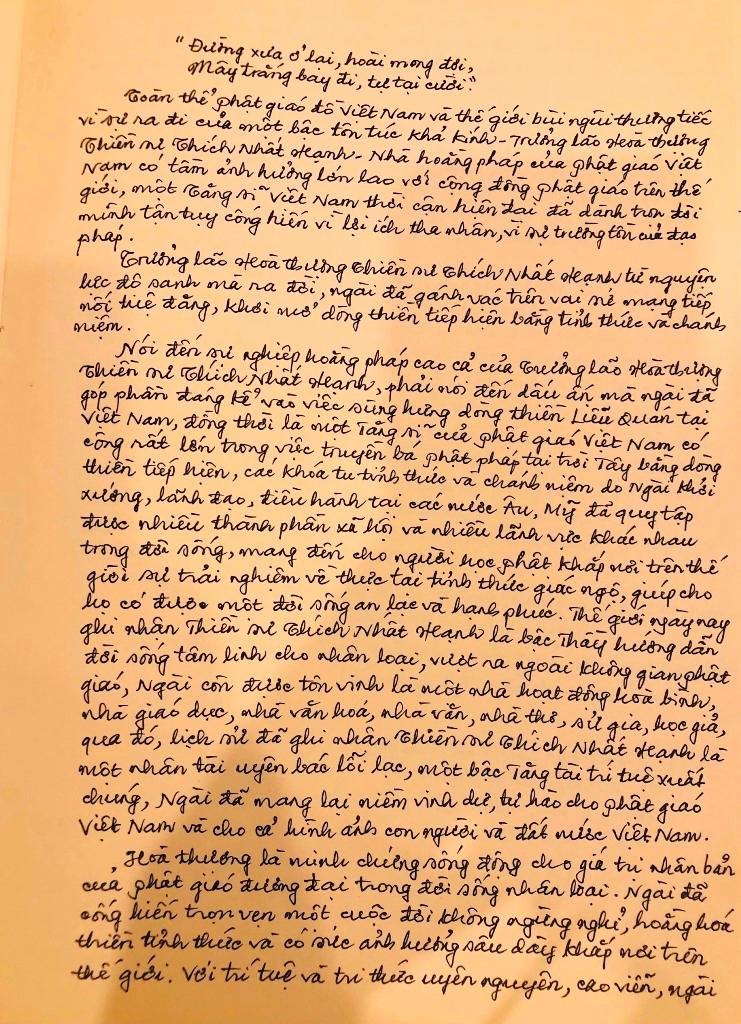 "Đường xưa ở lại, hoài mong đợi,
Mây trắng bay đi, tự tại cười."
Toàn thể phật giáo đồ Việt Nam và thế giới bùi ngùi thương tiếc
vì sự ra đi của một bậc tôn túc khả kính - Trưởng lão Hoà thượng
Thiền sư Thích Nhất Hạnh - Nhà hoằng pháp của phật giáo Việt
Nam có tầm ảnh hưởng lớn lao với cộng đồng phật giáo trên thế
giới, một Tăng sĩ Việt Nam thời cận hiện đại đã dành trọn đời
mình tận tụy cống hiến vì lợi ích tha nhân, vì sự trường tồn của đạo
pháp.
Trưởng lão Hoà thượng Thiền sư Thích Nhất Hạnh từ nguyện
lực độ sanh mà ra đời, ngài đã gánh vác trên vai sứ mạng tiếp
nối tuệ đăng, khởi mở dòng thiền tiếp hiện bằng tỉnh thức và chánh
niệm.
Nói đến sự nghiệp hoằng pháp cao cả của Trưởng lão Hoà thượng
Thiền sư Thích Nhất Hạnh, phải nói đến dấu ấn mà ngài đã
góp phần đáng kể vào việc sùng hưng dòng thiền Liễu Quán tại
Việt Nam, đồng thời là một Tăng sĩ của phật giáo Việt Nam có
công rất lớn trong việc truyền bá phật pháp tại trời Tây bằng dòng
thiền tiếp hiện, các khóa tu tỉnh thức và chánh niệm do Ngài khởi
xướng, lãnh đạo, điều hành tại các nước Âu, Mỹ đã quy tập
được nhiều thành phần xã hội và nhiều lãnh vực khác nhau
trong đời sống, mang đến cho người học phật khắp nơi trên thế
giới sự trải nghiệm về thực tại tỉnh thức giác ngộ, giúp cho
họ có được một đời sống an lạc và hạnh phúc. Thế giới ngày nay
ghi nhận Thiền sư Thích Nhất Hạnh là bậc Thầy hướng dẫn
đời sống tâm linh cho nhân loại, vượt ra ngoài không gian phật
giáo, Ngài còn được tôn vinh là một nhà hoạt động hoà bình,
nhà giáo dục, nhà văn hoá, nhà văn, nhà thơ, sử gia, học giả,
qua đó, lịch sử đã ghi nhận Thiền sư Thích Nhất Hạnh là
một nhân tài uyên bác lỗi lạc, một bậc Tăng tài trí tuệ xuất
chúng, Ngài đã mang lại niềm vinh dự, tự hào cho phật giáo
Việt Nam và cho cả hình ảnh con người và đất nước Việt Nam.
Hoà thượng là minh chứng sống động cho giá trị nhân bản
của phật giáo đương đại trong đời sống nhân loại. Ngài đã
cống hiến trọn vẹn một cuộc đời không ngừng nghỉ, hoằng hoá
thiền tỉnh thức và có sức ảnh hưởng sâu dày khắp nơi trên
thế giới. Với trí tuệ và tri thức uyên nguyên, cao viễn, ngài